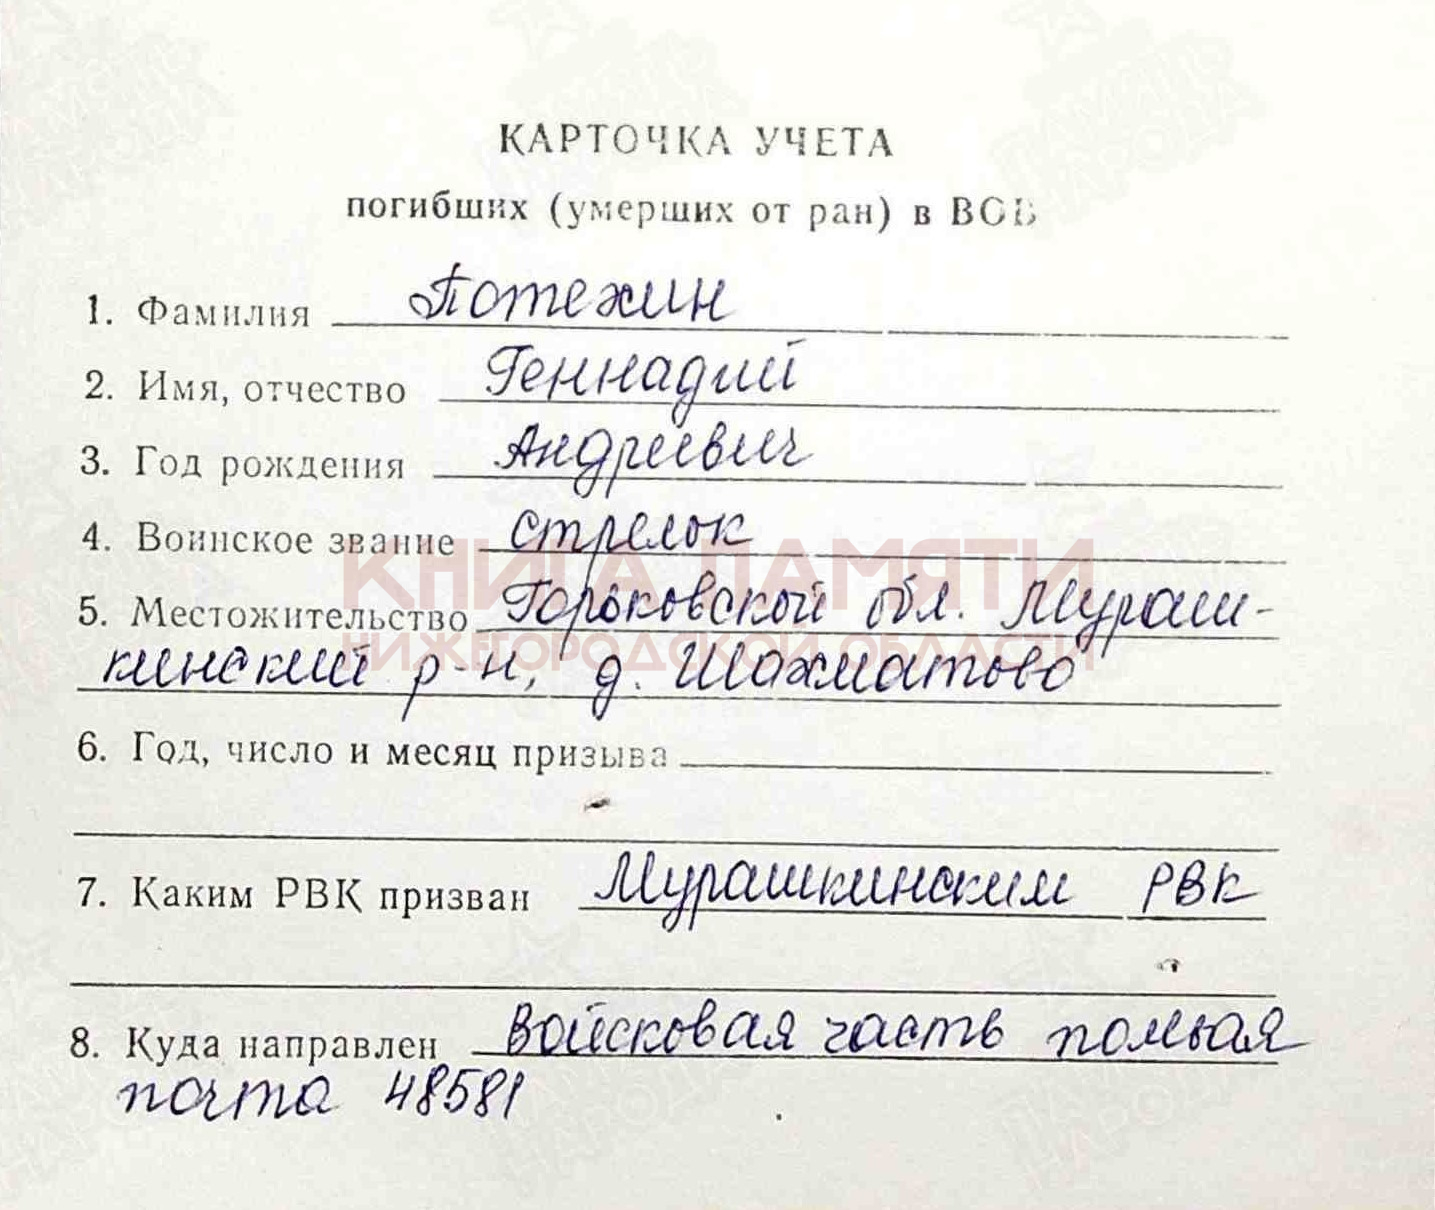 КАРТОЧКА УЧЕТА
погибших (умерших от ран) в ВОВ
1. Фамилия Потехин
2. Имя, отчество Геннадий
3. Год рождения Андреевич
4. Воинское звание стрелок
КНИГА ПАМЯТИ
5. Местожительство Горьковской обл. Мураш-
НИЖЕГОРОДСКОЙ ОБЛАСТИ
кинский р-н, д. Шахматово
6. Год, число и месяц призыва
7. Каким РВК призван Мурашкинским РВК
8. Куда направлен Войсковая часть полевая
почта 48581